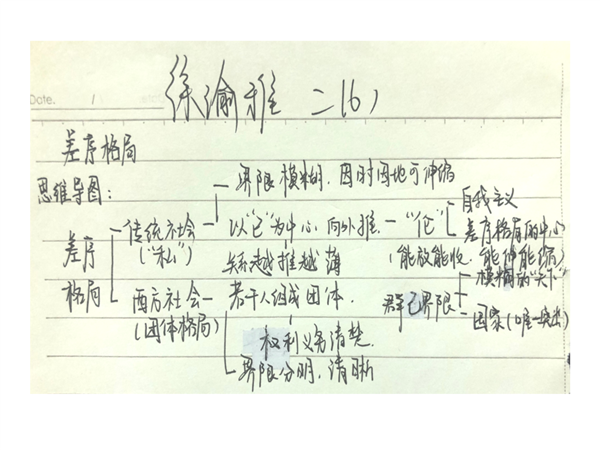 Date.
徐渝雅 二(6)
差序格局
思维导图:
界限模糊.因时因地可伸缩
传统社会 以"己"为中心 向外推. "伦" 自我主义
("私") 差序格局的中心
差序 关系越推越薄 (能放能收.能伸能缩)
格局 西方社会 若干人组成团体. 群己界限 模糊的"天下"
(团体格局) 国家(唯一突出)
权利义务清楚.
界限分明.清晰